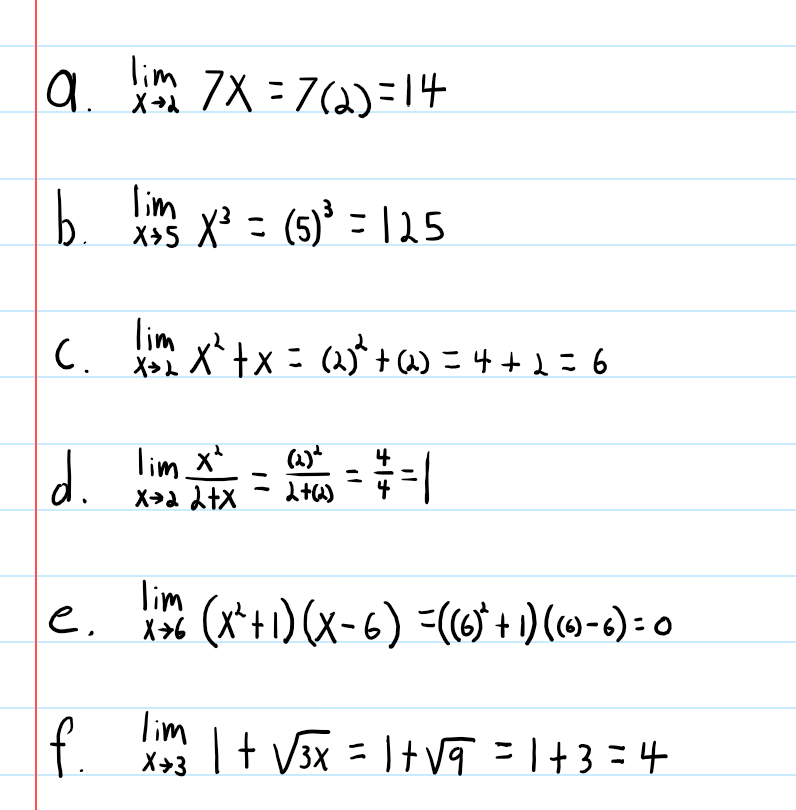 a. lim x→2 7x = 7(2) = 14
b. lim x→5 x³ = (5)³ = 125
c. lim x→2 x² + x = (2)² + (2) = 4 + 2 = 6
d. lim x→2 x²/(2+x) = (2)²/(2+(2)) = 4/4 = 1
e. lim x→6 (x²+1)(x-6) = ((6)²+1)((6)-6) = 0
f. lim x→3 1 + √(3x) = 1 + √9 = 1 + 3 = 4